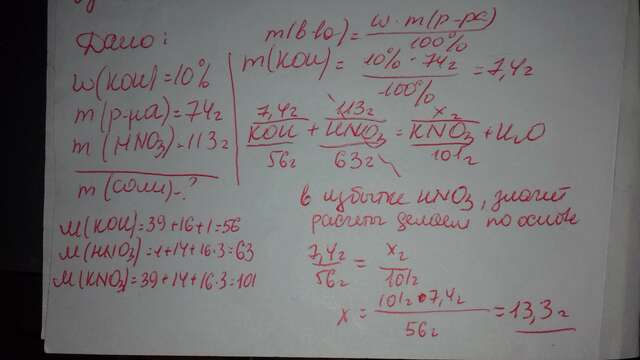 Дано:
w(KOH)=10%
m(р-ра)=74г
m(HNO3)=113г
m(соли)-?
M(KOH)=39+16+1=56
M(HNO3)=1+14+16·3=63
M(KNO3)=39+14+16·3=101
m(в-ва)=w·m(р-ра)/100%
m(KOH)=10%·74г/100%=7,4г
7,4г 113г xг
KOH+HNO3=KNO3+H2O
56г 63г 101г
в избытке HNO3, значит
расчеты делаем по основ
7,4г/56г=xг/101г
x=101г·7,4г/56г=13,3г